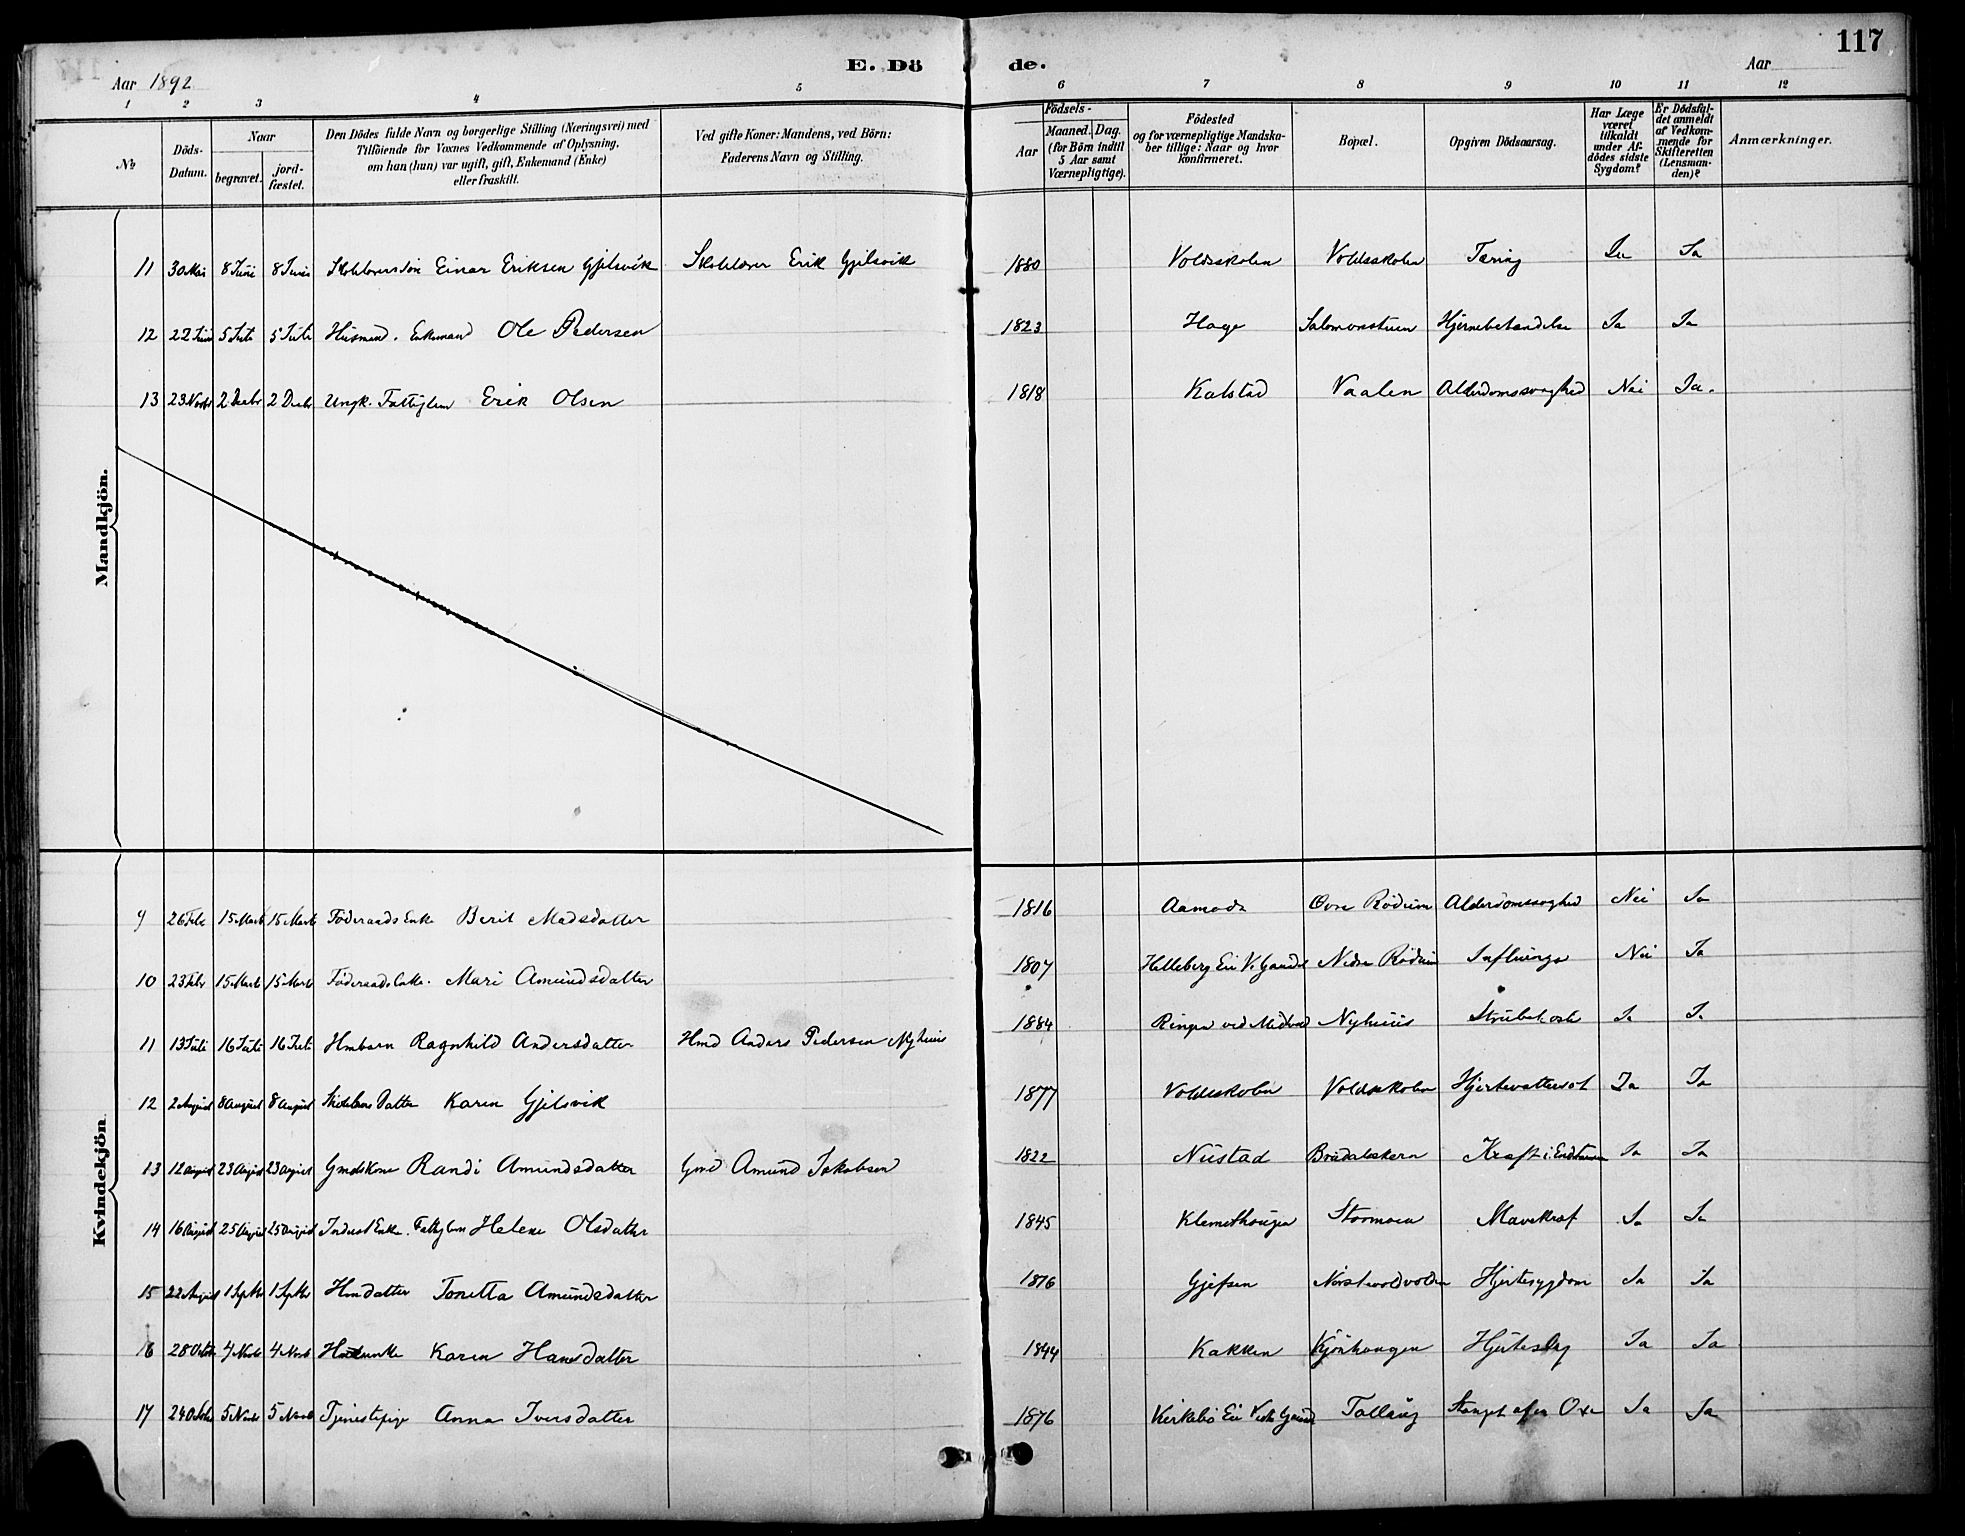 117
Aar 1892
E. Dö
de.
Aar
1 2 3 4 5 6 7 8 9 10 11 12
No
Döds-Datum.
Naar
begravet.
jord-fæstet.
Den Dödes fulde Navn og borgerlige Stilling (Næringsvei) med
Tilföiende for Voxnes Vedkommende af Oplysning,
om han (hun) var ugift, gift, Enkemand (Enke)
eller fraskilt.
Ved gifte Koner: Mandens, ved Börn:
Faderens Navn og Stilling.
Födsels-
Aar
Maaned. Dag.
(for Börn indtil
5 Aar samt
Værnepligtige).
Födested
og for værnepligtige Mandska-
ber tillige: Naar og hvor
konfirmeret.
Bopæl.
Opgiven Dödsaarsag.
Har Læge
været
tilkaldt
under Af-
dödes sidste
Sygdom?
Er Dödsfal-
det anmeldt
af Vedkom-
mende for
Skifteretten
(Lensman-
den)?
Anmærkninger.
Mandkjön.
11 30 Mai 8 Juni 8 Juni Einar Eriksen Gjelsvik Skolelærer Erik Gjelsvik 1880 Voldsskolen Voldsskolen Tæring Ja Ja
12 22 Juni 5 Juli 5 Juli Husmand. Enkemand Ole Pedersen 1823 Hage Salomonstuen Hjernebetændelse Ja Ja
13 23 Novbr 2 Decbr 2 Decbr Ungk. Fattiglem Erik Olsen 1818 Kalstad Vaalen Alderdomssvaghed Nei Ja.
Kvindekjön
9 26 Febr 15 Marts 15 Marts Föderaads Enke Berit Madsdatter 1816 Aamodt Övre Rödum Alderdomssvaghed Nei Ja
10 23 Febr 15 Marts 15 Marts Föderaads Enke. Mari Amundsdatter 1807 Helleberg Nedre Rödum Influenza Nei Ja
11 13 Juli 16 Juli 16 Juli Hmbarn Ragnhild Andersdatter Hmd Anders Pedersen Nyhuus 1884 Ringen ved Nyhuus Strubehoste Ja Ja
12 2 August 8 August 8 August Datter Karen Gjelsvik 1877 Voldsskolen Voldsskolen Hjertevattersot Ja Ja
13 12 August 23 August 23 August Gmdskone Randi Amundsdatter Gmd Amund Jakobsen 1822 Nustad Kræft i Endetarmen Ja Ja
14 16 August 25 August 25 August Inderst Enke. Fattiglem Helene Olsdatter 1845 Klemethaugen Stormoen Mavekræft Ja Ja
15 22 August 1 Septbr 1 Septbr Hmdatter Tonetta Amundsdatter 1876 Gjefsen Hjertesygdom Ja Ja
16 28 Octbr 4 Novb 4 Novb Karen Hansdatter 1844 Kakken Kjönhaugen Hjerteslag Ja Ja
17 24 Octbr 5 Novbr 5 Novb Tjenestepige Anna Iversdatter 1876 Kirkebö Tollaug Stanget af en Oxe Ja Ja